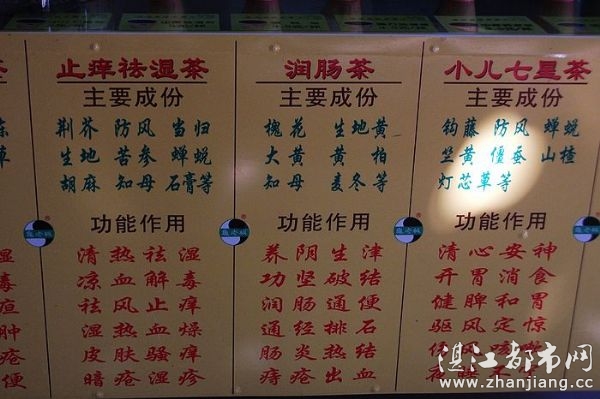 茶
草
毒
疸
肿
疮
便
止痒祛湿茶
主要成份
荆芥 防风 当归
生地 苦参 蝉蜕
胡麻 知母 石膏等
功能作用
清热祛湿
凉血解毒
祛风止痒
湿热血燥
皮肤骚痒
暗疮湿疹
润肠茶
主要成份
槐花 生地黄
大黄 黄柏
知母 麦冬等
功能作用
养阴生津
功坚破结
润肠通便
通经排石
肠炎热结
痔疮出血
小儿七星茶
主要成份
钩藤 防风 蝉蜕
竺黄 僵蚕 山楂
灯芯草等
功能作用
清心安神
开胃消食
健脾和胃
驱风定惊
湛江都市网
www.zhanjiang.cc